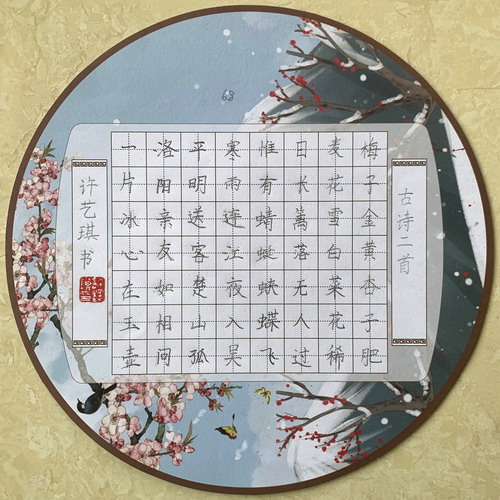 古诗二首
梅子金黄杏子肥
麦花雪白菜花稀
日长篱落无人过
惟有蜻蜓蛱蝶飞
寒雨连江夜入吴
平明送客楚山孤
洛阳亲友如相问
一片冰心在玉壶
许艺琪书